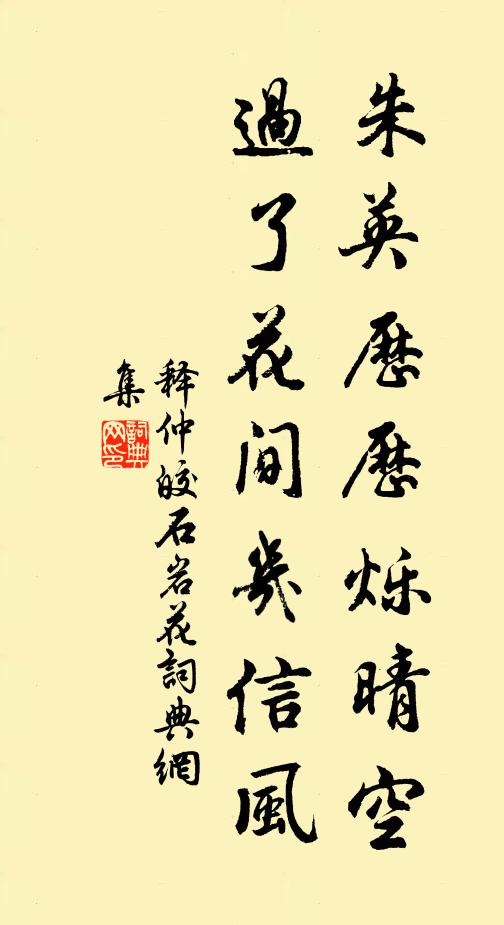 朱英歷歷烁晴空
過了花间幾信風
释仲皎石岩花詞典網
集
詞典网印